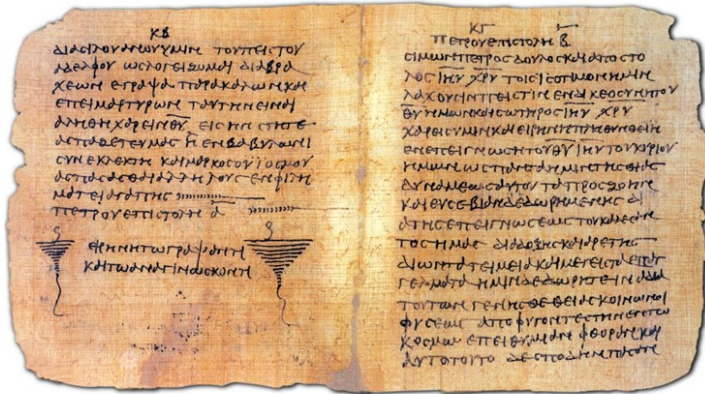 ΚΒ
διαϲιλουανουυμιν τουπειϲτου
αδελφου ωϲλογειζομαι διαβρα
χεων εγραψα παρακαλωνκαι
επειμαρτυρων ταυτηνειναι
αληθηχαρειν θ̅υ̅ ειϲ ηνϲτητε
αϲπαζετευμαϲ η ενβαβυλωνι
ϲυνεκλεκτη και μαρκοϲουιοϲμου
αϲπαϲαϲθαιαλληλουϲ ενφιλη
ματειαγαπηϲ
πετρουεπιϲτολη α̅
ειρηνητωγραψαντι
καιτωαναγινωϲκοντι
ΚΓ
πετρουεπιϲτολη β̅
ϲιμωνπετροϲδουλοϲκαιαποϲτο
λοϲ ι̅η̅υ̅ χ̅ρ̅υ̅ τοιϲιϲοτιμονημιν
λαχουϲινπιϲτιν ενδικεοϲυνητου
θ̅υ̅ ημωνκαιϲωτηροϲ ι̅η̅υ̅ χ̅ρ̅υ̅
χαρειϲυμινκαιειρηνηπληθυνθειη
ενεπειγνωϲητου θ̅υ̅ ι̅η̅υ̅ τουκυριου
ημων ωϲπανταημιντηϲθειαϲ
δυναμεωϲαυτου ταπροϲζωην
καιευϲεβιανδεδωρημενηϲ δι
ατηϲεπειγνωϲεωϲτουκαλεϲαν
τοϲημαϲ διαδοξηϲκαιαρετηϲ
διωντατειμειακαιμεγειϲταεπαγ
γελματα ημινδεδωρητειναδια
τουτων γενηϲθεθειαϲκοινωνοι
φυϲεωϲ αποφυγοντεϲτηνεντω
κοϲμωεπειθυμιαν φθορανκαι
αυτοτουτο δεϲπουδηνπαϲαν